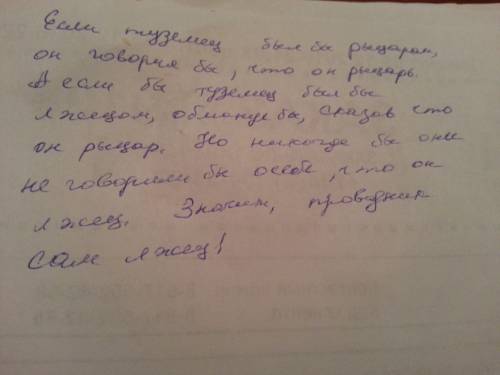 Если туземец был бы рыцарем,
он говорил бы, что он рыцарь.
А если бы туземец был бы
лжецом, обманул бы, сказав что
он рыцар. Но никогда бы они
не говорили бы о себе, что он
лжец. Значит, проводник
сам лжец!